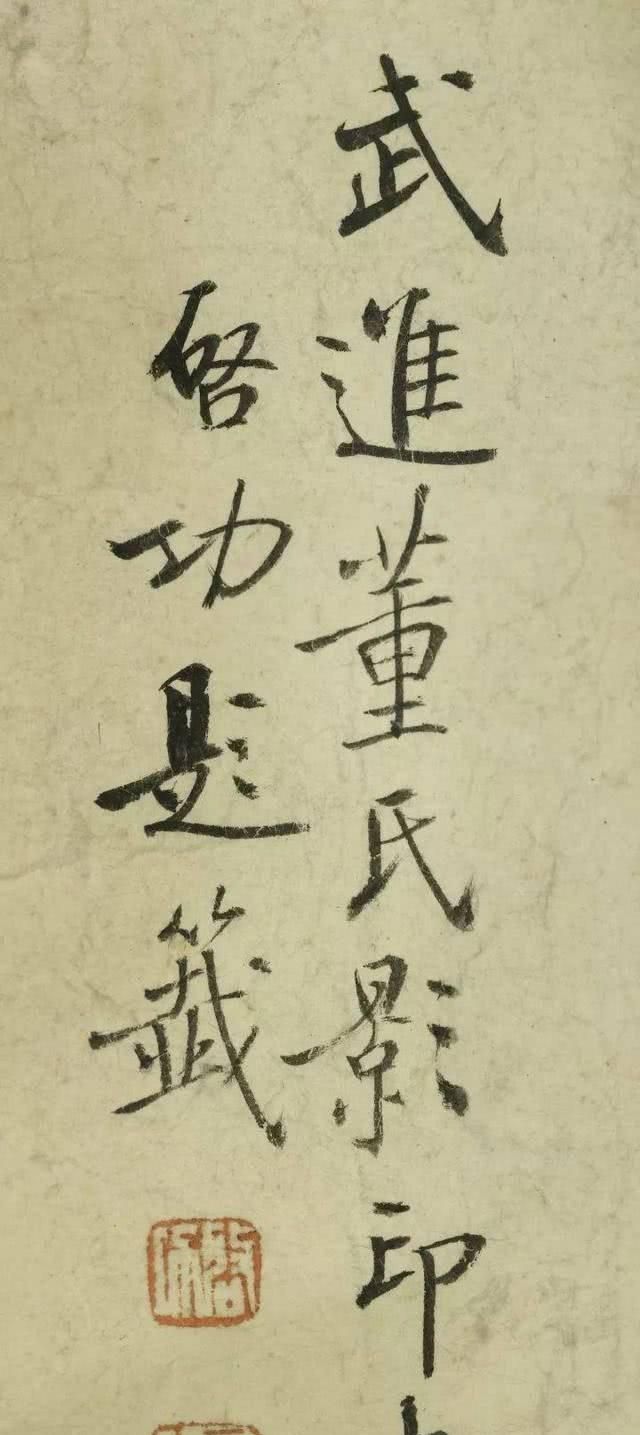 武進董氏影印
啓功題籤